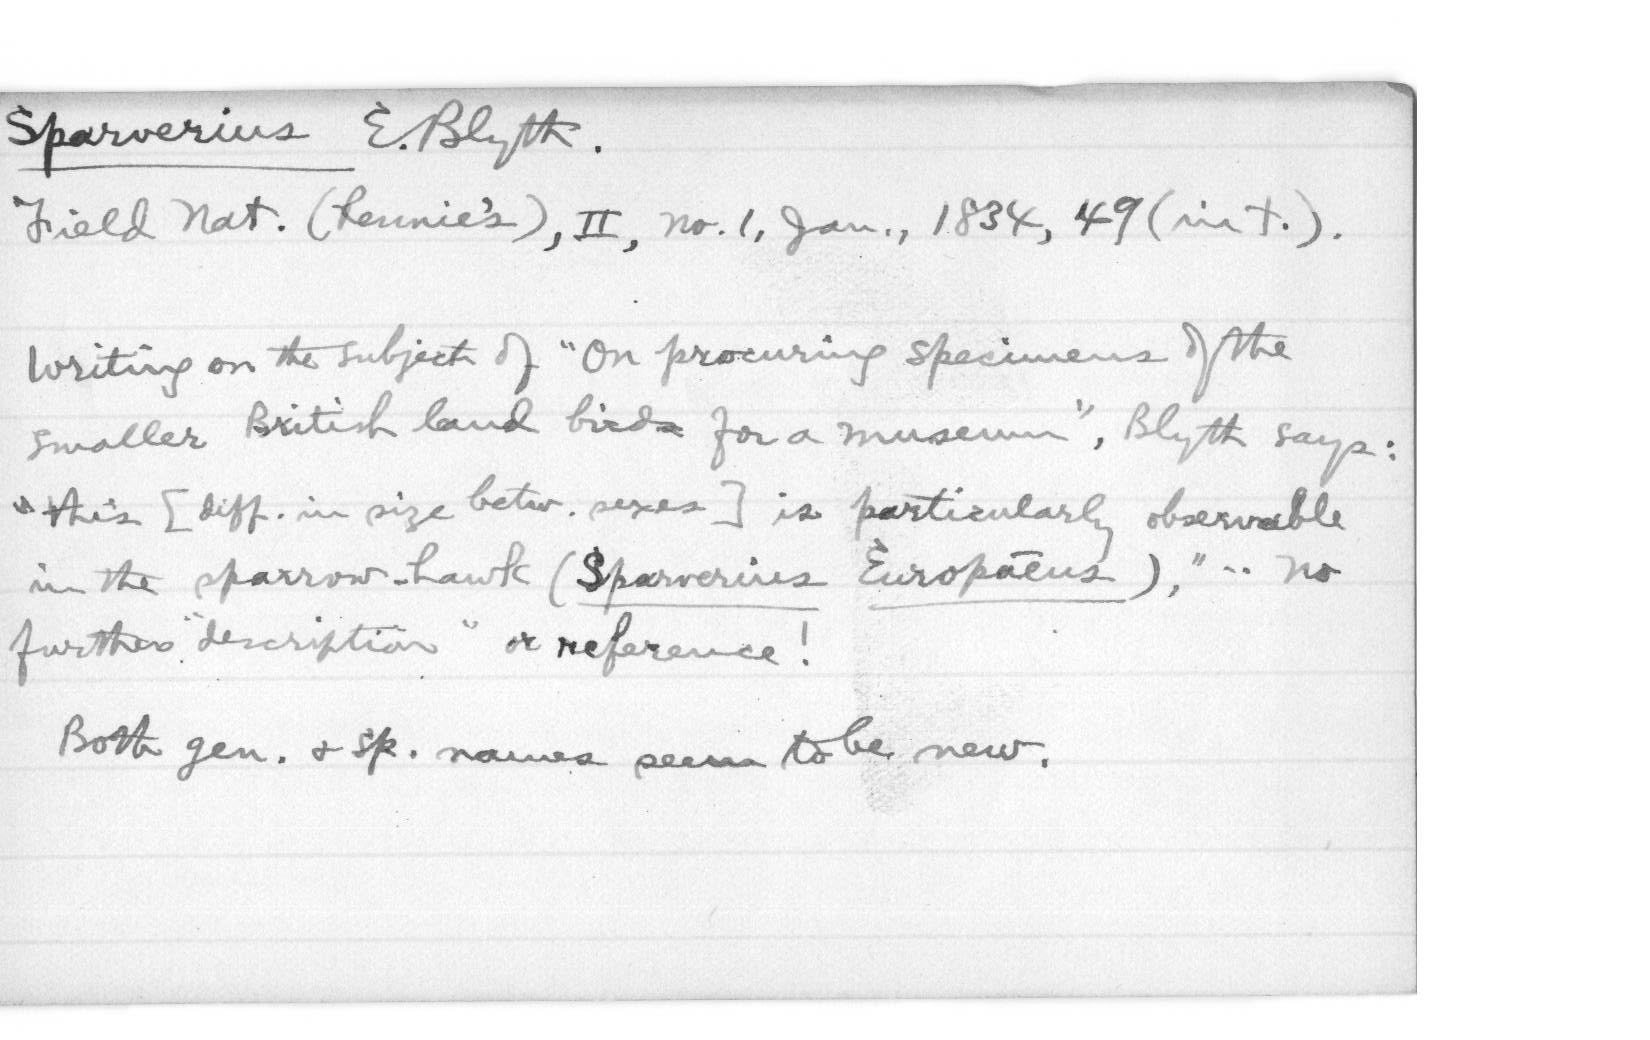 Sparverius E. Blyth.
Field Nat. (Rennie's), II, no. 1, Jan., 1834, 49 (in t.).
Writing on the subject of "On procuring specimens of the
smaller British land birds for a museum", Blyth says:
"this [diff. in size betw. sexes] is particularly observable
in the sparrow-hawk (Sparverius Europaeus)," .. no
further "description" or reference!
Both gen. & sp. names seem to be new.